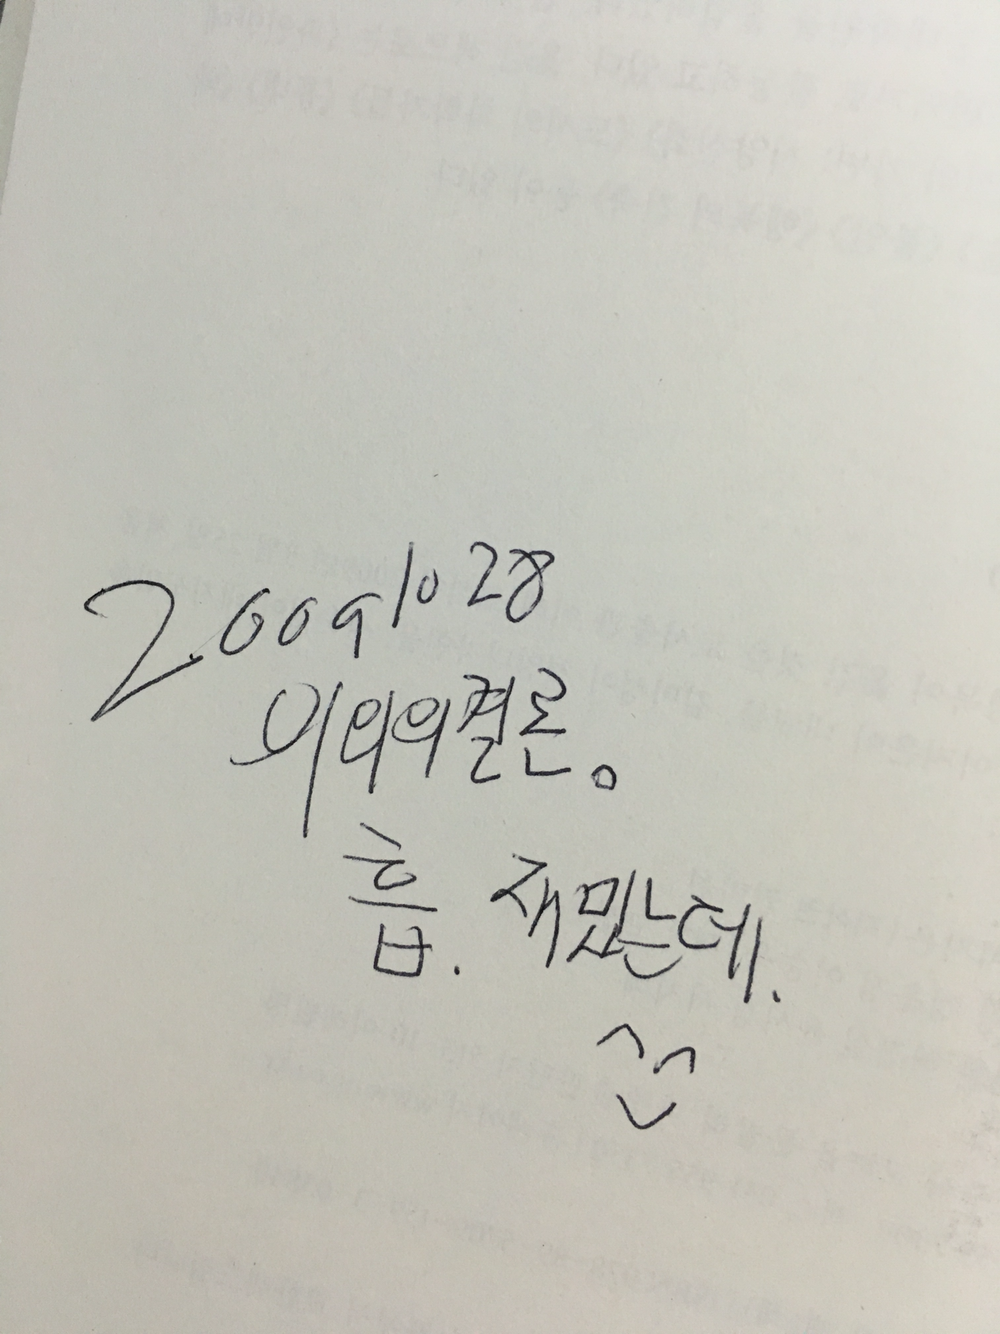 2009 10 28
의외의 결론。
흡. 재밌는데.